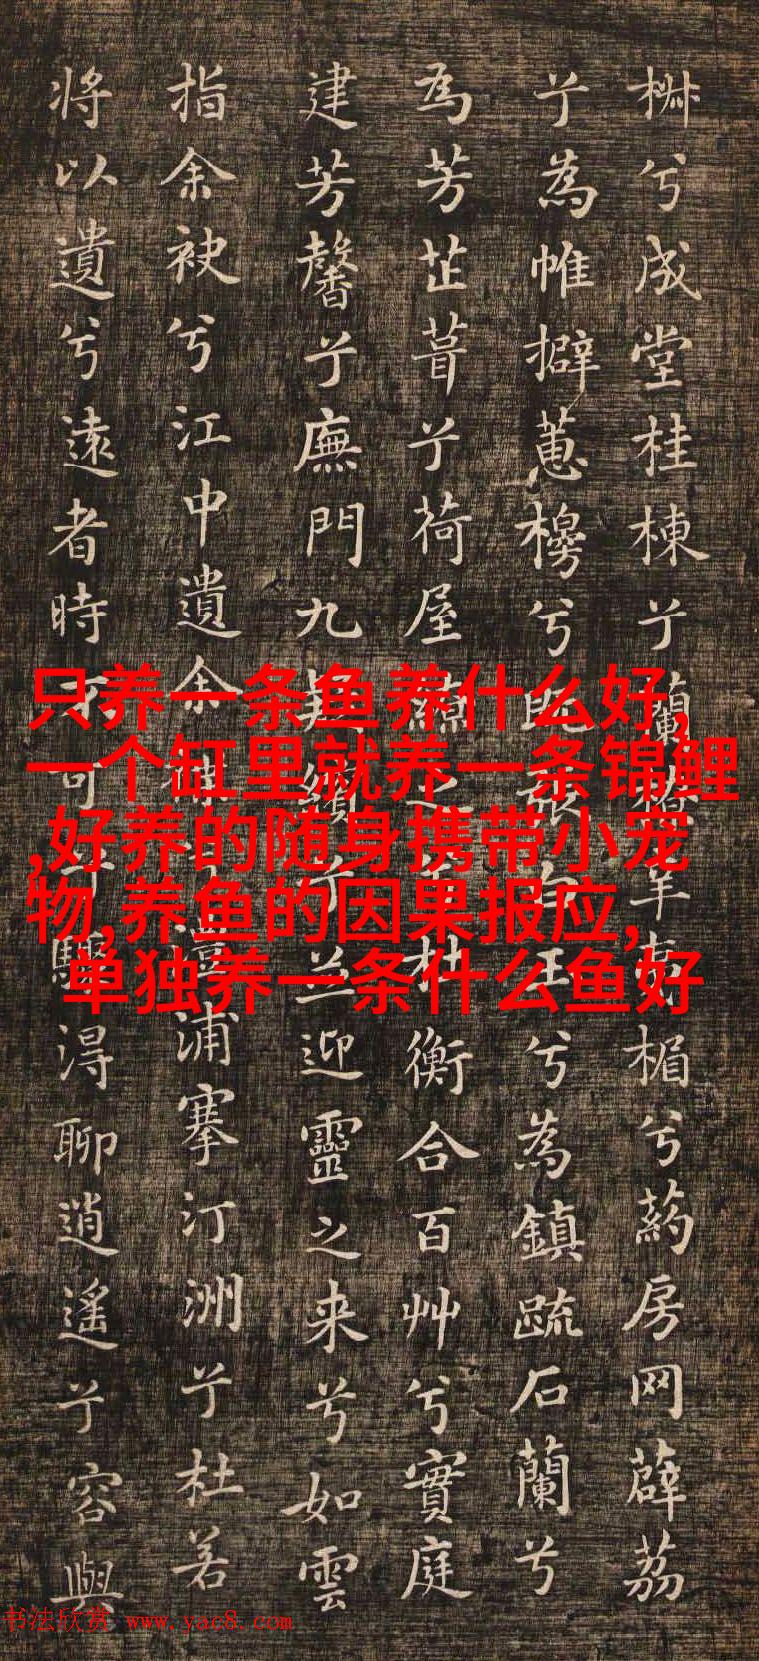 椒兮成堂桂棟兮蘭橑辛夷楣兮葯房网薜荔
兮為帷擗蕙櫋兮既張白玉兮為鎮疏石蘭兮
為芳芷葺兮荷屋繚之兮杜衡合百艸兮實庭
建芳馨兮廡門九疑繽兮並迎靈之来兮如雲
指余袂兮江中遺余褋兮澧浦搴汀洲兮杜若
将以遺兮遠者時不可兮驟得聊逍遙兮容與
只养一条鱼养什么好,
一个缸里就养一条锦鲤
,好养的随身携带小宠
物,养鱼的因果报应,
单独养一条什么鱼好
书法欣赏 www.yac8.com